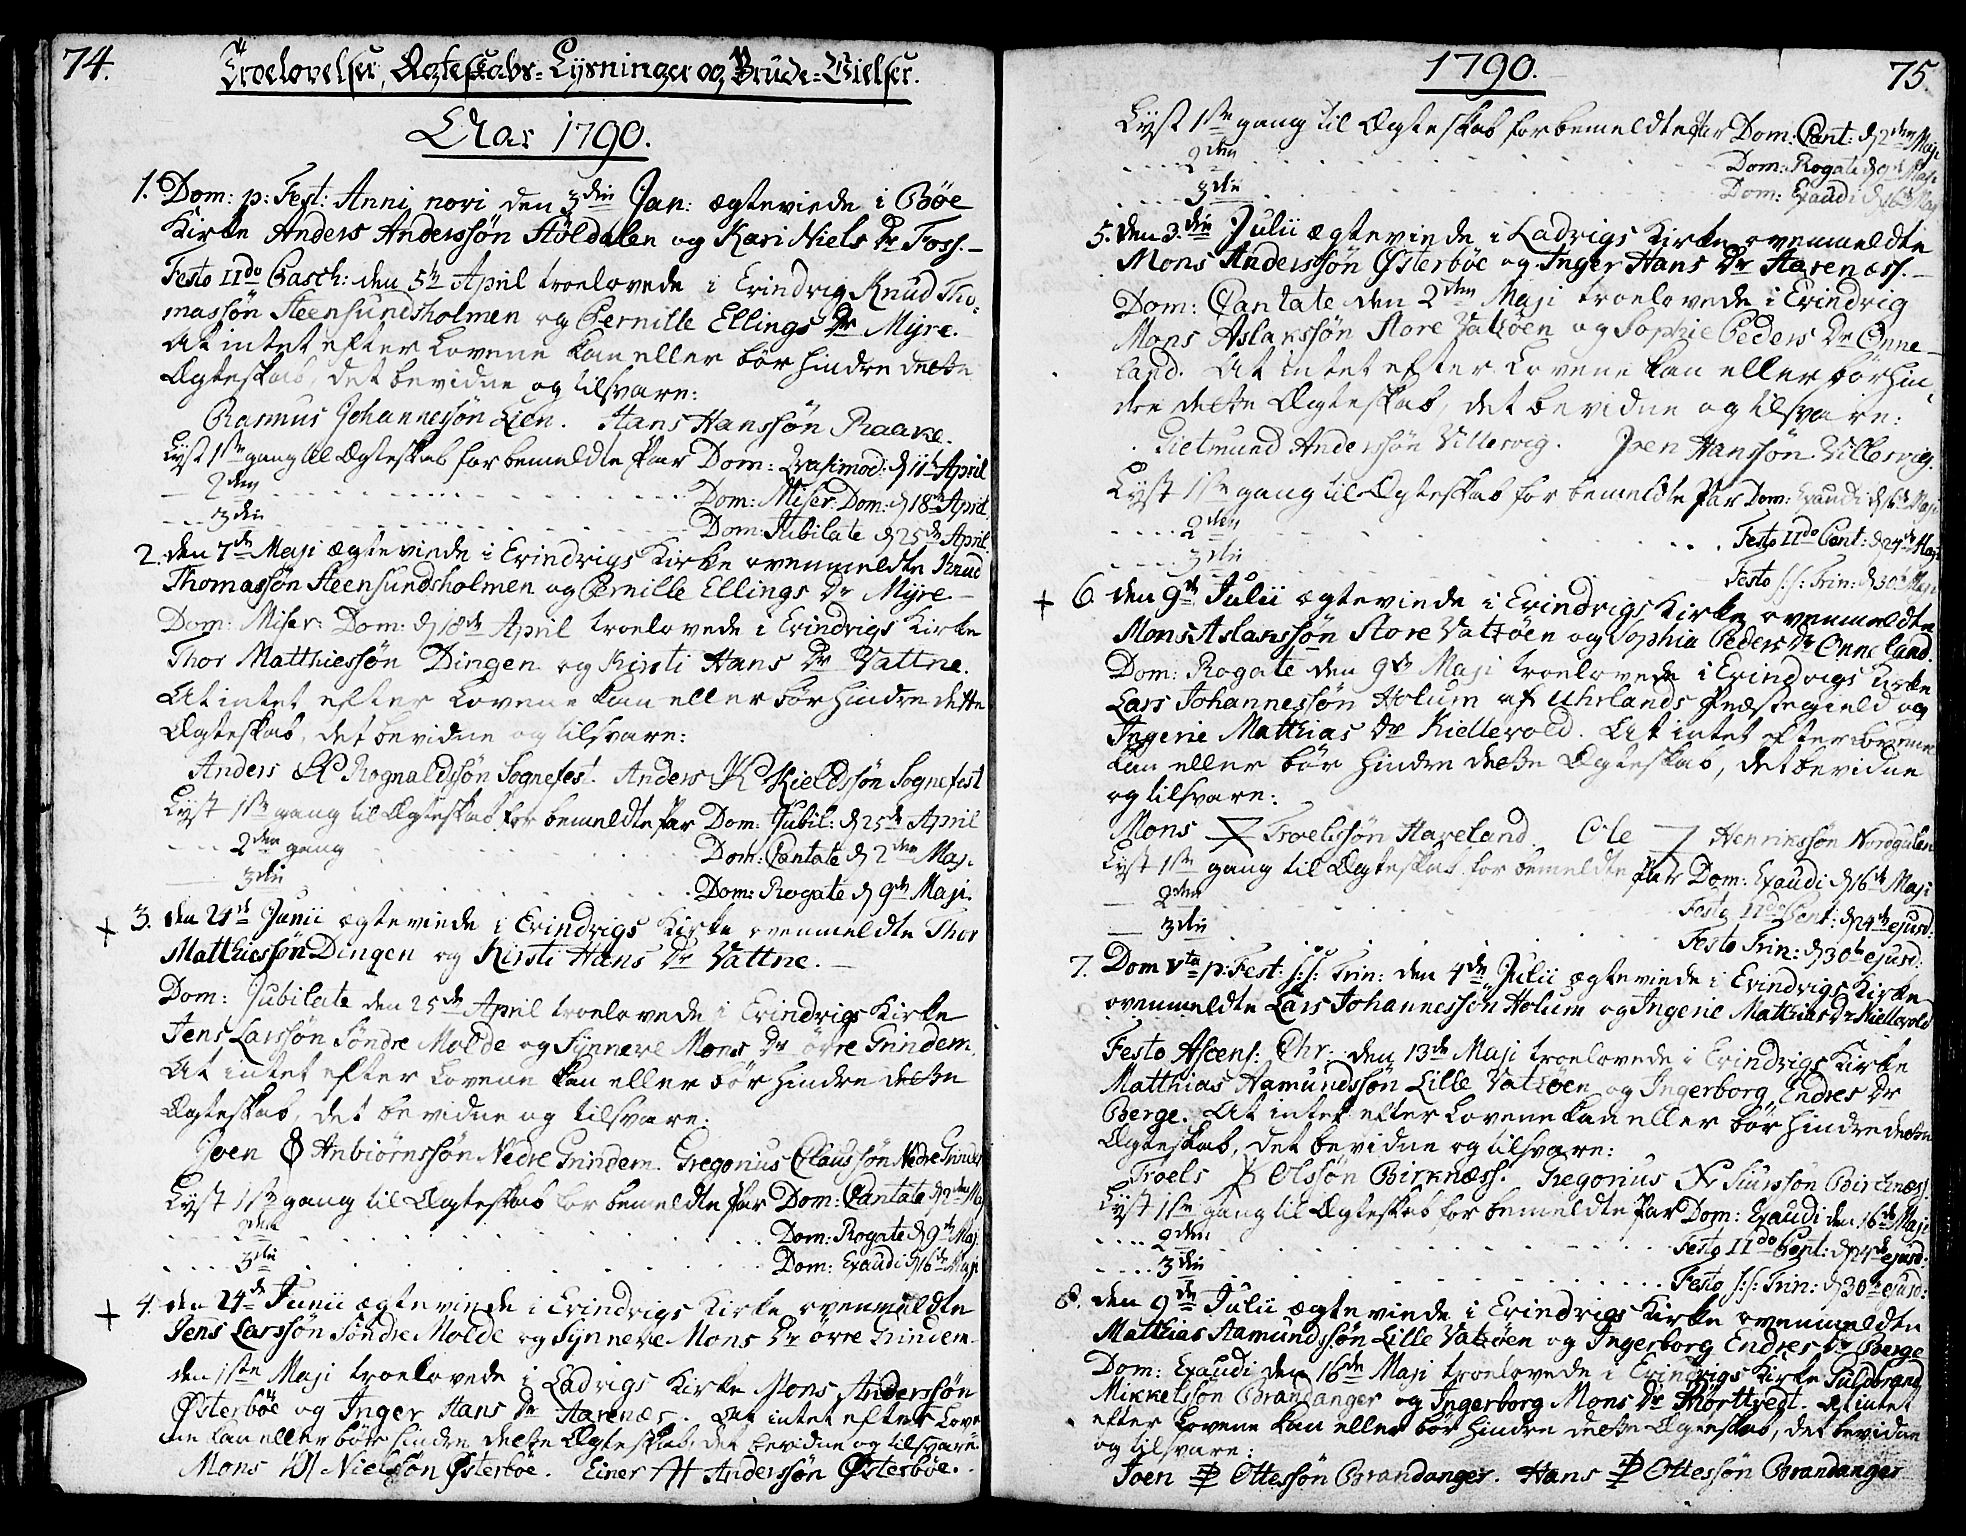 74.
Troelovelser, Ægteskabs-Lysninger og Brude-Vielser.
Aar 1790.
1. Dom: p: Fest: Anni novi den 3die Jan: ægteviede i Bøe
Kirke Anders Anderssøn Støldalen og Kari Niels Dr Foss.
Festo IIdo Pasch: den 5te April troelovede i Evindvig Knud Tho-
massøn Steensundsholmen og Pernille Ellings Dr Myre.
At intet efter Lovene kan eller bør hindre dette
Ægteskab, det bevidne og tilsvare:
Rasmus Johannessøn Lien. Hans Hanssøn Raake.
Lyst 1ste gang til Ægteskab for bemeldte Par Dom: Qvasimod: d 11te April
2den Dom: Miser: Dom: d 18de April
3die Dom: Jubilate d 25de April
2. den 7de Maji ægteviede i Evindvigs Kirke ovenmeldte Knud
Thomassøn Steensundsholmen og Pernille Ellings Dr Myre
Dom: Miser: Dom: d 18de April troelovede i Evindvigs Kirke
Thor Matthiessøn Dingen og Kirsti Hans Dr Vattne.
At intet efter Lovene kan eller bør hindre dette
Ægteskab, det bevidne og tilsvare:
Anders Rognaldssøn Sognefest. Anders K Kieldssøn Sognefest
Lyst 1ste gang til Ægteskab for bemeldte Par Dom: Jubil: d 25de April
2den gang Dom: Cantate d 2den Maj.
3die Dom: Rogate d 9de Maji.
+ 3. den 24de Junii ægteviede i Evindvigs Kirke ovenmeldte Thor
Matthiessøn Dingen og Kirsti Hans Dr Vattne.
Dom: Jubilate den 25de April troelovede i Evindvigs Kirke
Jens Larssøn Søndre Molde og Synneve Mons Dr øvre Grindem.
At intet efter Lovene kan eller bør hindre dette
Ægteskab, det bevidne og tilsvare:
Joen Anbiørnssøn Nedre Grindem. Gregorius Claussøn Nedre Grindem
Lyst 1ste gang til Ægteskab for bemeldte Par Dom: Cantate d 2den Maj
2den Dom: Rogate d 9de Maj.
3die Dom: Exaudi d 16de Maji
+ 4. den 24de Junii ægteviede i Evindvigs Kirke ovenmeldte
Jens Larssøn Søndre Molde og Synneve Mons Dr øvre Grindem
den 1ste Maji troelovede i Ladvigs Kirke Mons Anderssøn
Østerbøe og Inger Hans Dr Aarenæs. At intet efter Love
ne kan eller bør hindre dette Ægteskab, det bevidne og tilsvare
Mons Nielssøn Østerbøe. Einer Anderssøn Østerbøe.
1790.
75.
Lyst 1ste gang til Ægteskab for bemeldte Par Dom: Cant: d 2den Maji
2den Dom: Rogate d 9de Maji
3die Dom: Exaudi d 16de Maj
5. den 3die Julii ægteviede i Ladvigs Kirke ovenmeldte
Mons Anderssøn Østerbøe og Inger Hans Dr Aarenæss.
Dom: Cantate den 2den Maji troelovede i Evindvig
Mons Aslakssøn Store Vatsøen og Sophie Peders Dr Onne-
land. At intet efter Lovene kan eller bør hin
dre dette Ægteskab, det bevidne og tilsvare:
Gietmund Anderssøn Villesvig. Joen Hanssøn Villesvig.
Lyst 1ste gang til Ægteskab for bemeldte Par Dom: Exaudi d 16de Maji
2den Festo IIdo Pent: d 24de Maji
3die Festo s:s: Trin: d 30te Maji
+ 6. den 9de Julii ægteviede i Evindvigs Kirke ovenmeldte
Mons Aslakssøn Store Vatsøen og Sophia Peders Dr Onneland.
Dom: Rogate den 9de Maji troelovede i Evindvigs Kirke
Lars Johannessøn Holum af Uhrlands Præstegield og
Ingerie Matthias Dr Kiellevold. At intet efter Lovene
kan eller bør hindre dette Ægteskab, det bevidne
og tilsvare:
Mons Troelssøn Haveland. Ole Henrikssøn Nordgulen
Lyst 1ste gang til Ægteskab for bemeldte Par Dom: Exaudi d 16de Maji
2den Festo IIdo Pent: d 24de ejusd:
3die Festo Trin: d 30te ejusd.
7. Dom Vta p: Fest: s:s: Trin: den 4de Julii ægteviede i Evindvigs Kirke
ovenmeldte Lars Johannessøn Holum og Ingerie Matthias Dr Kiellevold
Festo Ascens: Chr: den 13de Maji troelovede i Evindvigs Kirke
Matthias Aamundssøn Lille Vatsøen og Ingerborg Endres Dr
Berge. At intet efter Lovene kan eller bør hindre dette
Ægteskab, det bevidne og tilsvare:
Troels Olssøn Birknæss. Gregorius Siurssøn Birchnæss
Lyst 1ste gang til Ægteskab for bemeldte Par Dom: Exaudi den 16de Maji
2den Festo IIdo Pent: d 24de ejusd:
3die Festo s:s: Trin: d 30te ejusd:
8. den 9de Julii ægteviede i Evindvigs Kirke ovenmeldte
Matthias Aamundssøn Lille Vatsøen og Ingerborg Endres Dr Berge
Dom: Exaudi den 16de Maji troelovede i Evindvigs Kirke Guldbrand
Mikkelssøn Brandanger og Ingerborg Mons Dr Thorttvedt. At intet
efter Lovene kan eller bør hindre dette Ægteskab, det bevidne
og tilsvare:
Joen Ottessøn Brandanger. Hans Ottessøn Brandanger